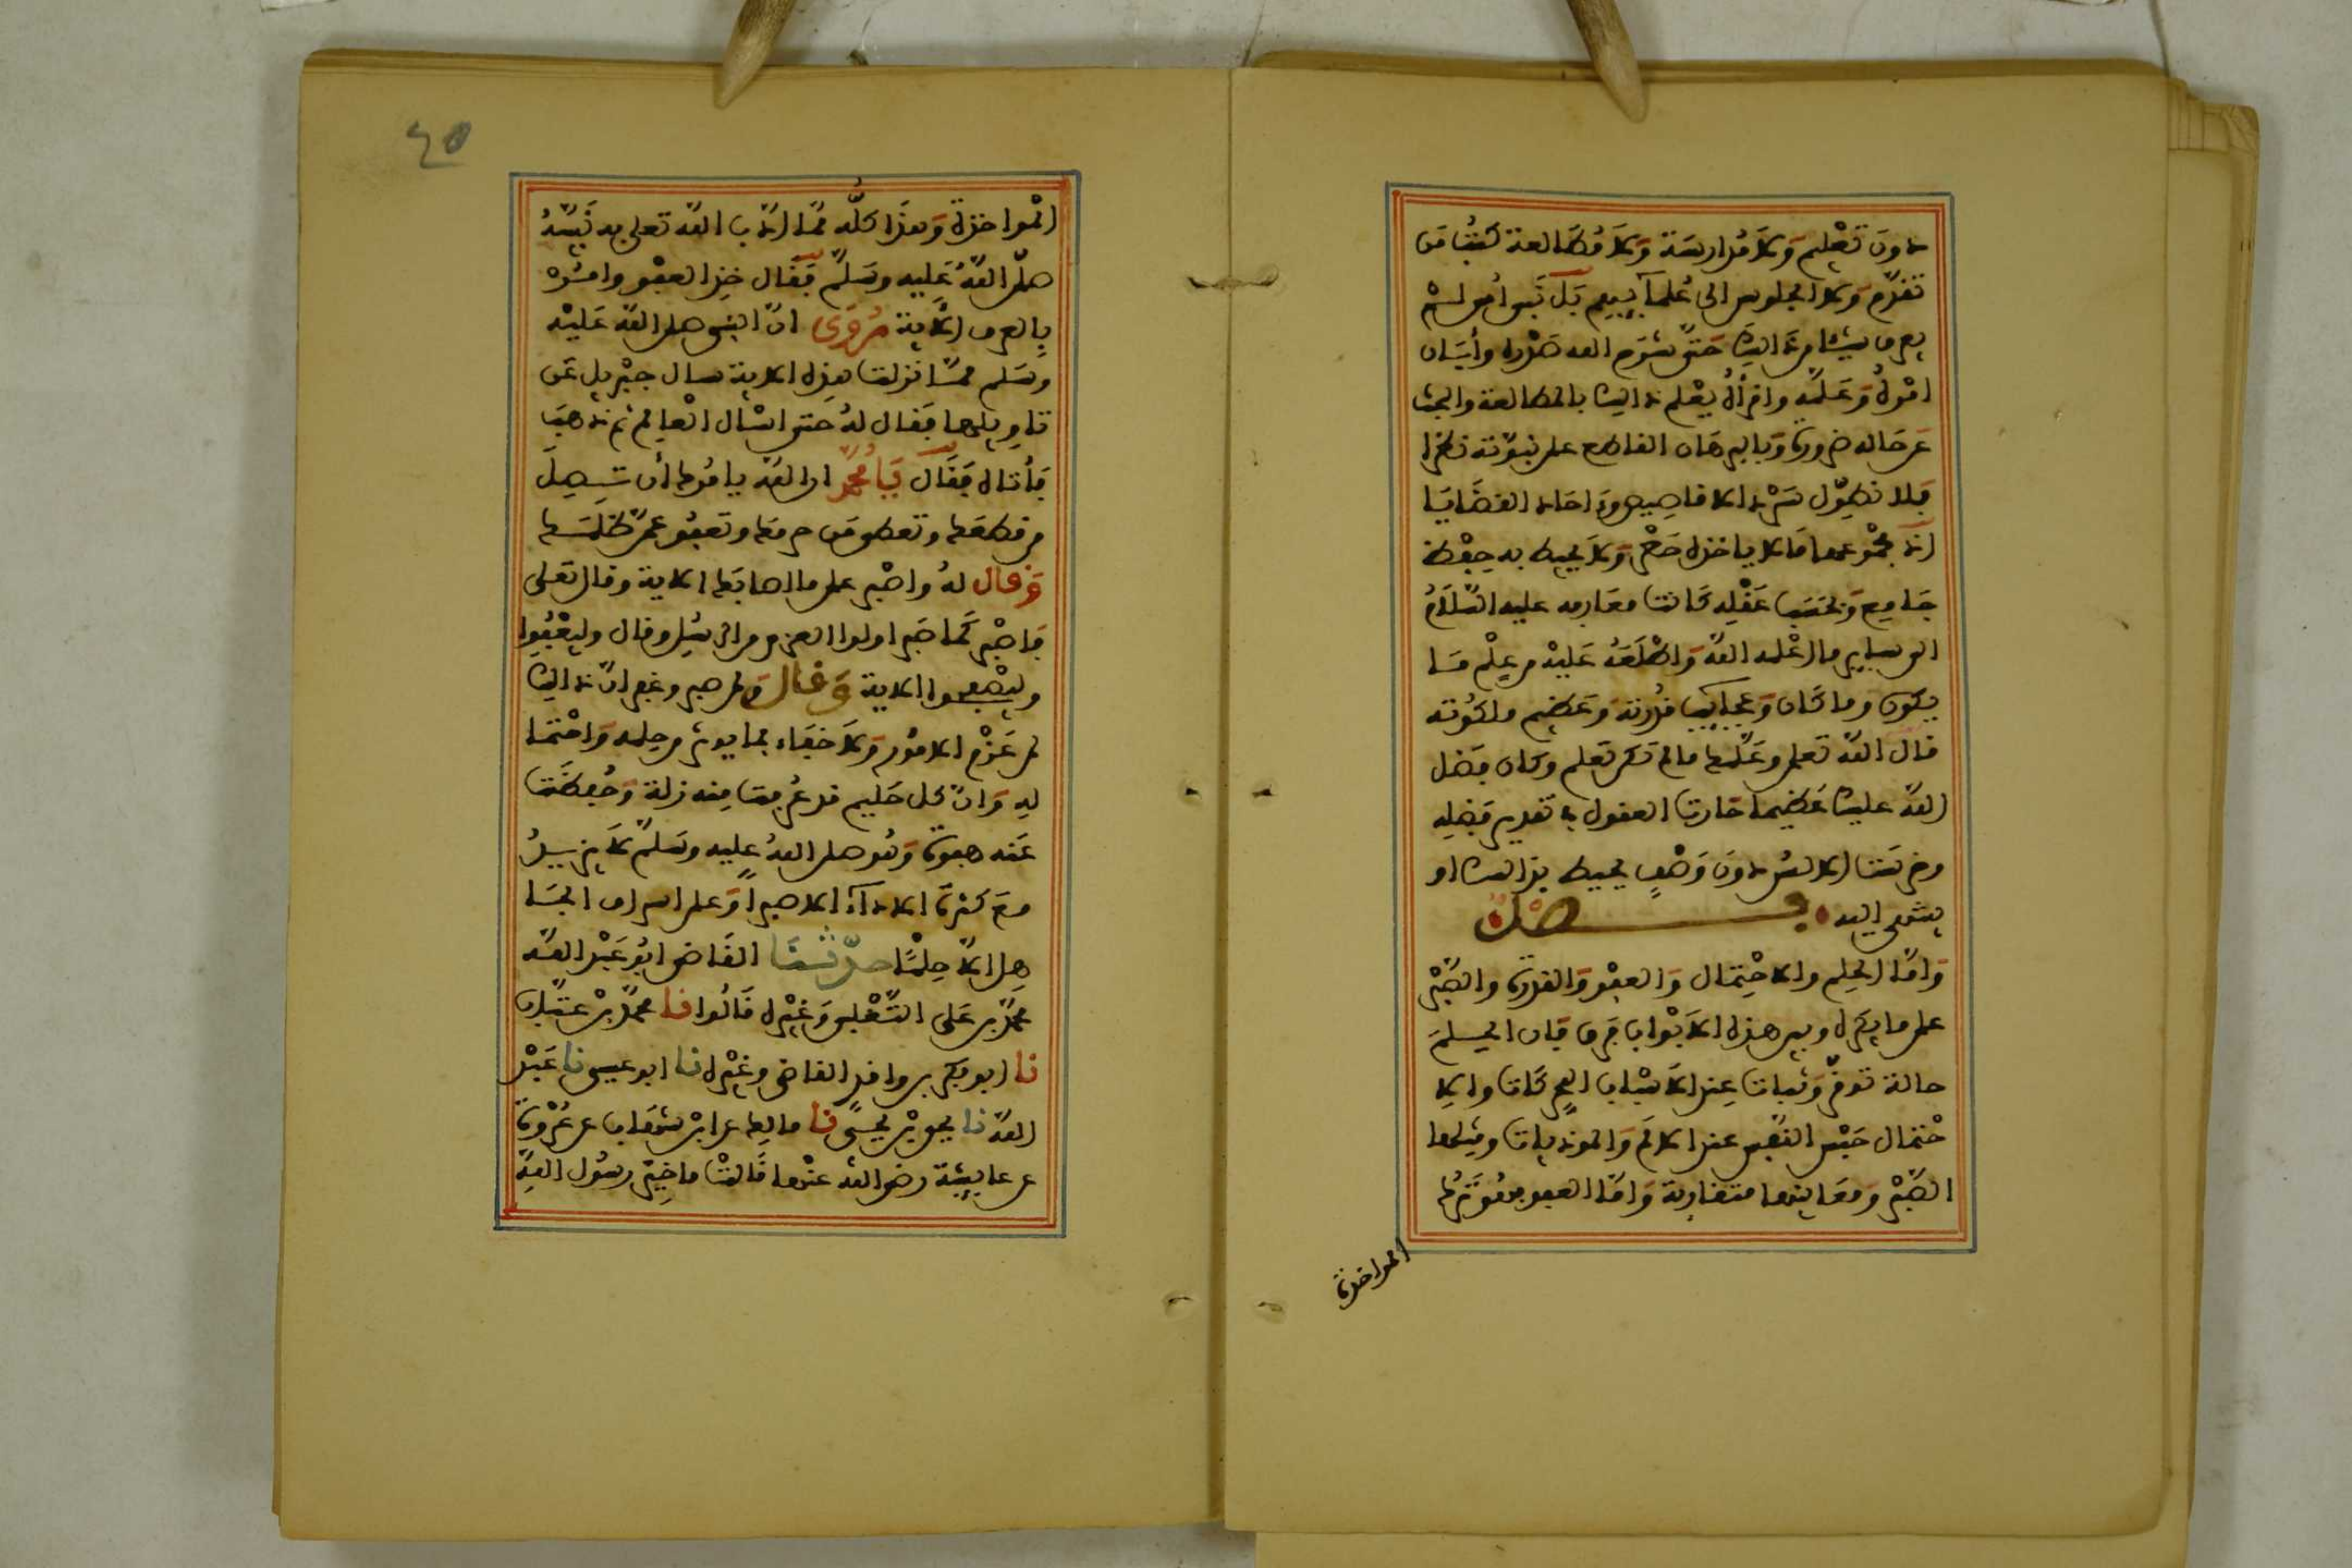 دون تعليم ولا مدارسة ولا مطالعة كتب من
تقدم ولا الجلوس الى علمآييهم بل نبي أمي لم
يعرف بشيء من ذالك حتى شرح الله صدره وأبان
امره وعلمه واقرأه يعلم ذالك بالمطالعة والبحث
عن حاله ضرورة وبالبرهان القاطع على نبوته نظرا
فلا نطول بسرد الاقاصيص وءاحاد القضايا
اذ مجموعها ما لا ياخذه حصر ولا يحيط به حفظ
جامع وبحسب عقله كانت معارفه عليه السلام
الى ساير ما علمه الله واطلعه عليه من علم ما
يكون وما كان وعجايب قدرته وعظيم ملكوته
قال الله تعلى وعلمك ما لم تكن تعلم وكان فضل
الله عليك عظيما حارت العقول في تقدير فضله
وخرست الالسن دون وصف يحيط بذالك او
ينتهي اليه فصل
واما الحلم والاحتمال والعفو والقدرة والصبر
على ما يكره وبين هذه الابواب فرق فان الحلم
حالة توقر وثبات عند الاسباب المحركات والا
حتمال حبس النفس عند الالم والموذيات ومثلها
الصبر ومعانيها متقاربة واما العفو فهو ترك
المواخذة
٤٥
المواخذة وهذا كله مما ادب الله تعلى به نبيه
صلى الله عليه وسلم فقال خذ العفو وامر
بالعرف الاية وروي ان النبي صلى الله عليه
وسلم لما نزلت هذه الاية سال جبريل عن
تاويلها فقال له حتى اسال العالم ثم ذهب
فأتاه فقال يامحمد ان الله يامرك أن تصل
من قطعك وتعطي من حرمك وتعفو عمن ظلمك
وقال له واصبر على ما اصابك الاية وقال تعلى
فاصبر كما صبر اولوا العزم من الرسل وقال وليعفوا
وليصفحوا الاية وقال ولمن صبر وغفر ان ذالك
لمن عزم الامور ولا خفاء بما يوثر من حلمه واحتما
له وان كل حليم قد عرفت منه زلة وحفظت
عنه هفوة وهو صلى الله عليه وسلم لا يزيد
مع كثرة الاذآء الا صبرا وعلى اسراف الجا
هل الا حلما حدثنا القاضي ابو عبد الله
محمد بن على التغلبي وغيره قالوا نا محمد بن عتاب
نا ابو بكر بن وافد القاضي وغيره نا ابو عيسى نا عبيد
الله نا يحيى بن يحيى نا مالك عن ابن شهاب عن عروة
عن عايشة رضي الله عنها قالت ما خير رسول الله